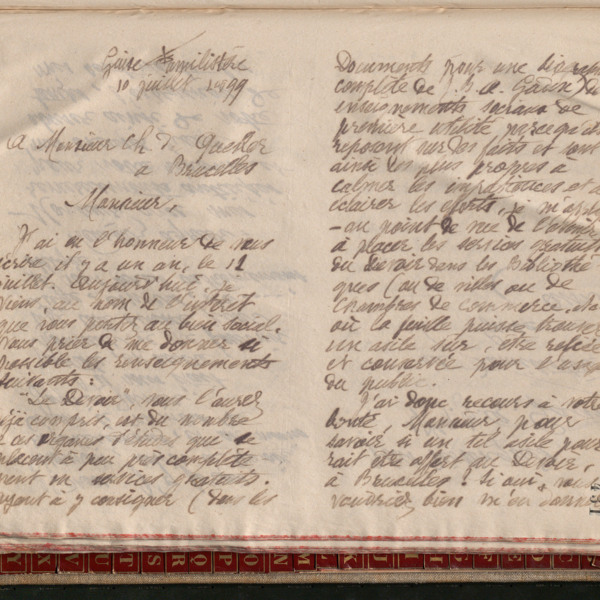 Guise Familistère
10 juillet 1899
A Monsieur Ch. D
à Bruxelles
Monsieur,
J'ai eu l'honneur de vous
écrire, il y a un an, le 11
juillet. Aujourd'hui, je
viens, au nom de l'intérêt
que vous portez au bien social,
vous prier de me donner si
possible les renseignements
suivants :
"Le Devoir" vous l'aurez
déjà compris, est du nombre
organes d'études que se
placent à peu près complète
ment en services gratuits.
ayant à y consigner (dans les
Documents pour une biographie
complète de J. B. A. Godin) des
enseignements sociaux de
première utilité parcequ'ils
reposent sur des faits et sont
ainsi les plus propres à
calmer les impatiences et à
éclairer les efforts, je
- au point de vue de l'avenir
à placer les services gratuits
du Devoir dans les Bibliothè
ques (ou de villes ou de
Chambres de commerce, etc
où la feuille puisse trouver
un asile sûr, être reliée
et conservée pour l'usage
du public.
J'ai donc recours à votre
bonté, Monsieur, pour
savoir si un tel asile pour
rait être offert au Devoir,
à Bruxelles. Si oui, vous
voudriez bien m'en donner
Y X V U T S R Q P O N M